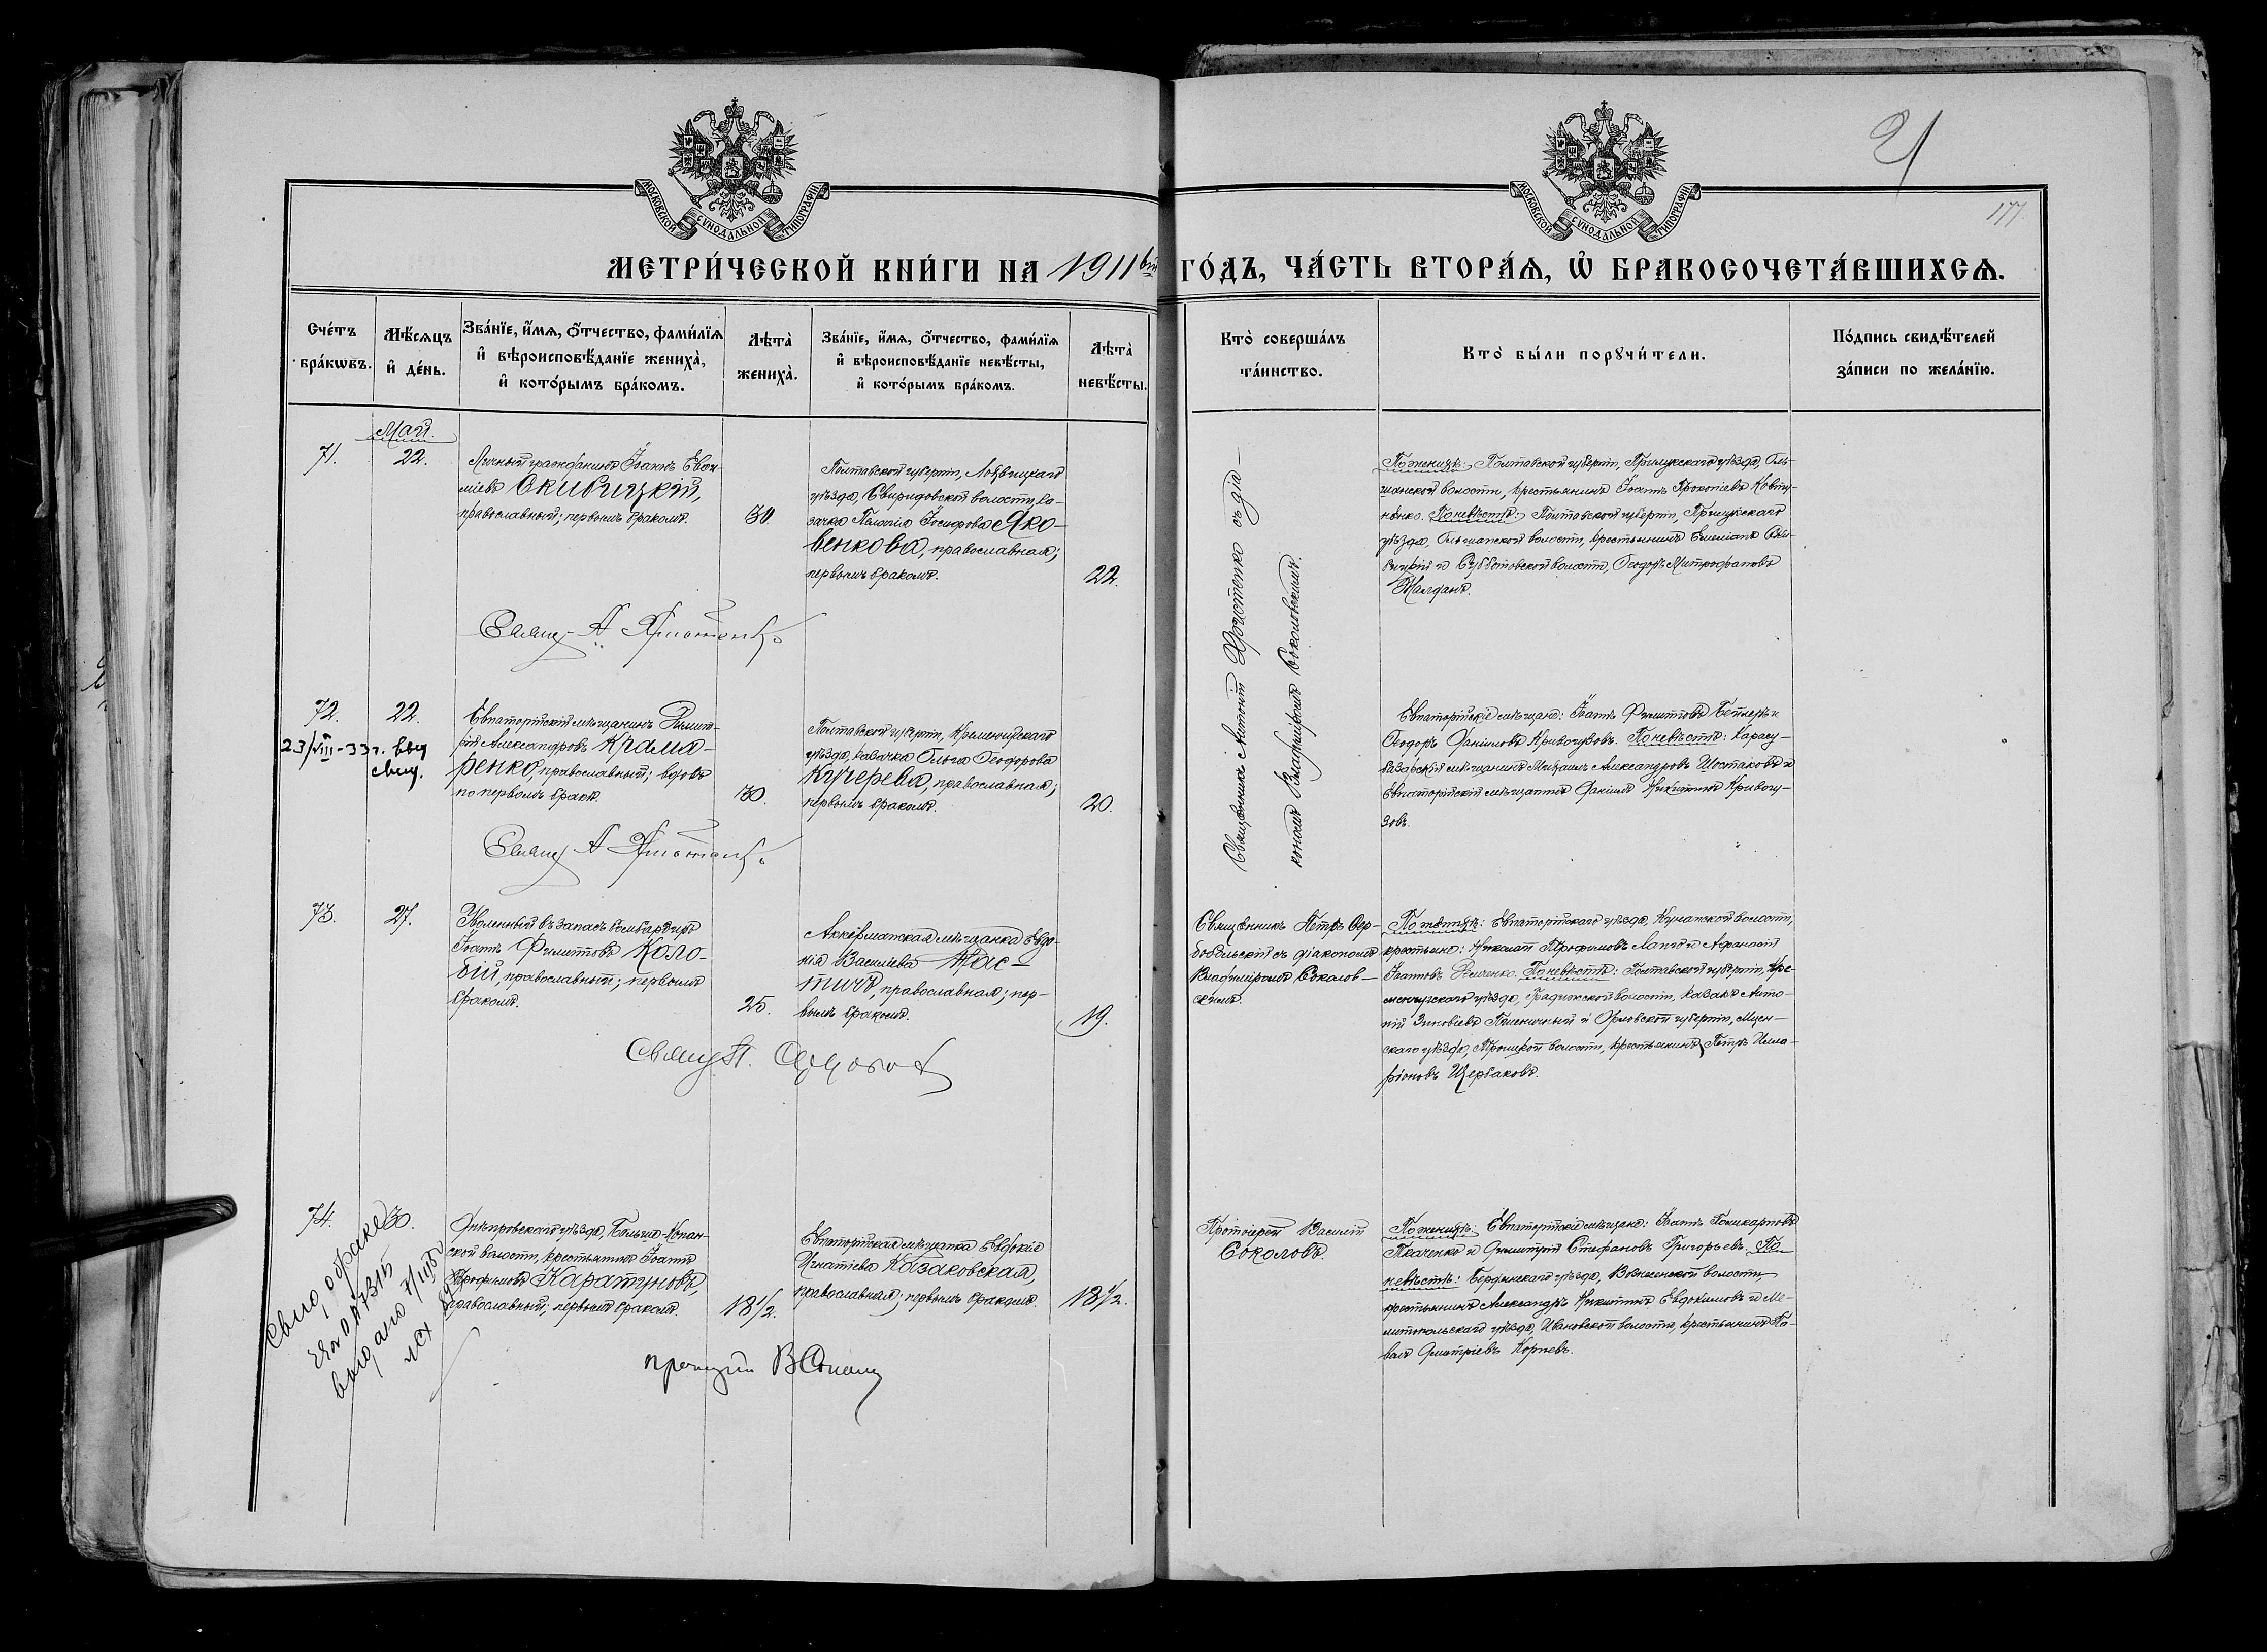 21
177
МОСКОВСКОЙ СѴНОДАЛЬНОЙ ТИПОГРАФІИ
МОСКОВСКОЙ СѴНОДАЛЬНОЙ ТИПОГРАФІИ
МЕТРИ́ЧЕСКОЙ КНИ́ГИ НА 1911 ГО́ДЪ, ЧА́СТЬ ВТОРА́Ѧ, Ѡ҆ БРАКОСОЧЕТА́ВШИХСѦ.
Сче́тъ бра́кѡвъ.
Мѣ́сѧцъ и҆ де́нь.
Зва́нїе, и҆́мѧ, ѻ҆́тчество, фами́лїѧ
и҆ вѣроисповѣ́данїе жениха̀,
и҆ кото́рымъ бра́комъ.
Лѣта̀ жениха̀.
Зва́нїе, и҆́мѧ, ѻ҆́тчество, фами́лїѧ
и҆ вѣроисповѣ́данїе невѣ́сты,
и҆ кото́рымъ бра́комъ.
Лѣта̀ невѣ́сты.
Кто̀ соверша́лъ та́инство.
Кто̀ бы́ли порꙋчи́тели.
По́дпись свидѣ́телей
за́писи по жела́нїю.
Май.
71.
22.
Личный гражданинъ Іоаннъ Евѳи-
міевъ Скивицкій,
православный; первымъ бракомъ.
30.
Полтавской губерніи, Лохвицкаго
уѣзда, Свиридовской волости, ка-
зачка Пелагія Іосифова Яко-
венкова, православная;
первымъ бракомъ.
22.
Священникъ Антоній Христенко съ діа-
кономъ Владиміромъ Соколовскимъ.
По женихѣ: Полтавской губерніи, Прилукскаго уѣзда, Оль-
шанской волости, крестьянинъ Іоаннъ Прокопіевъ Ковту-
ненко. По невѣстѣ: Полтавской губерніи, Прилукскаго
уѣзда, Ольшанской волости, крестьянинъ Емеліанъ Ски-
вицкій и волости, Ѳеодоръ Митрофановъ
Жалданъ.
Свящ. А Христенко
72.
22.
23/VIII-33 г. выд
свид.
Евпаторійскій мѣщанинъ Димит-
рій Александровъ Крама-
ренко, православный; вдовъ
по первомъ бракѣ.
30.
Полтавской губерніи, Кременчугскаго
уѣзда, казачка Ольга Ѳеодорова
Кучерева, православная;
первымъ бракомъ.
20.
Евпаторійскіе мѣщане: Іоаннъ Филипповъ и
Ѳеодоръ Даніиловъ Кривогузовъ. По невѣстѣ: Карасу-
базарскій мѣщанинъ Михаилъ Александровъ Шостаковъ и
Евпаторійскій мѣщанинъ Даніилъ Никитинъ Кривогу-
зовъ.
Свящ А Христенко
73.
27.
Уволенный въ запасъ бомбардиръ
Іоаннъ Филипповъ Коло-
бій, православный; первымъ
бракомъ.
25.
Аккерманская мѣщанка Евдо-
кія Василіева
православная; пер-
вымъ бракомъ.
19.
Священникъ Петръ Сер-
бобольскій съ діакономъ
Владиміромъ Соколов-
скимъ.
По женихѣ: Евпаторійскаго уѣзда, волости,
крестьяне: Николай Трофимовъ и Аѳанасій
Іоанновъ. По невѣстѣ: Полтавской губерніи, Кре-
менчугскаго уѣзда, Градижской волости, казакъ Анто-
ній Зиновіевъ Пшеничный и Орловской губерніи, Мцен-
скаго уѣзда, Троицкой волости, крестьянинъ Петръ Илла-
ріоновъ Щербаковъ.
Свящ П.
74.
30.
Свид, о браке
выдано
Днѣпровскаго уѣзда, Больше-Копан-
ской волости, крестьянинъ Іоаннъ
Трофимовъ Каратуновъ,
православный; первымъ бракомъ.
18½.
Евпаторійская мѣщанка Евдокія
Игнатіева Казаковская,
православная; первымъ бракомъ.
18½.
Протоіерей Василій
Соколовъ.
По женихѣ: Евпаторійскіе мѣщане: Іоаннъ Поликарповъ
Ткаченко и Димитрій Стефановъ Григорьевъ. По
невѣстѣ: Бердянскаго уѣзда, Вознесенской волости,
крестьянинъ Александръ Никитинъ Евдокимовъ и Ме-
литопольскаго уѣзда, Ивановской волости, крестьянинъ Па-
велъ Димитріевъ Корневъ.
протоіерей В Соколов